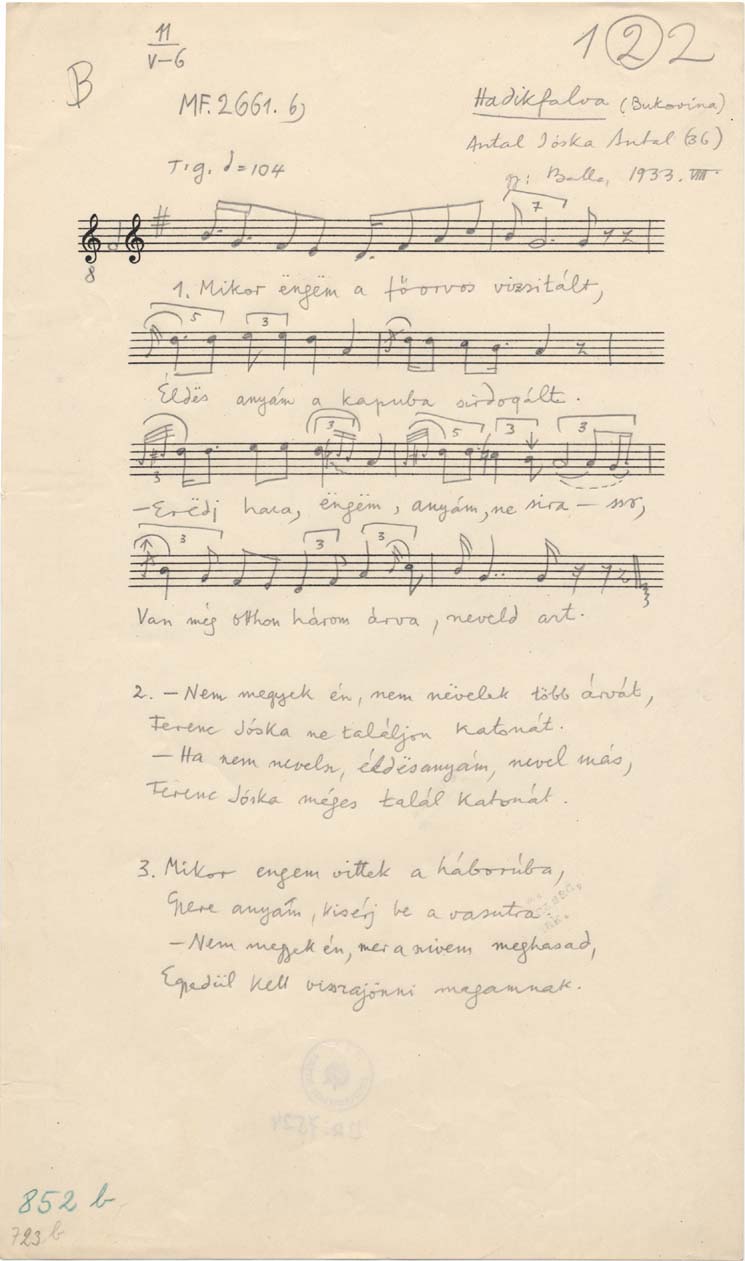 11
V-6
1 2 2
B
MF. 2661. b)
Hadikfalva (Bukovina)
Antal Jóska Antal (36)
T. g. = 104
gy: Balla, 1933. VIII.
7
8
1. Mikor ëngëm a főorvos vizsitált,
5 3
Éldës anyám a kapuba sirdogált.
3 5 3 3
3
–Erëdj haza, ëngëm, anyám, ne sira – ssz,
3 3 3
3
Van még otthon három árva, neveld azt.
2. – Nem megyek én, nem nëvelek több árvát,
Ferenc Jóska ne találjon katonát.
– Ha nem nevelsz, éldësanyám, nevel más,
Ferenc Jóska méges talál katonát.
3. Mikor engem vittek a háborúba,
Gyere anyám, kisérj be a vasutra.
– Nem megyek én, mer a szivem meghasad,
Egyedül kell visszajönni magamnak.
852 b
723 b